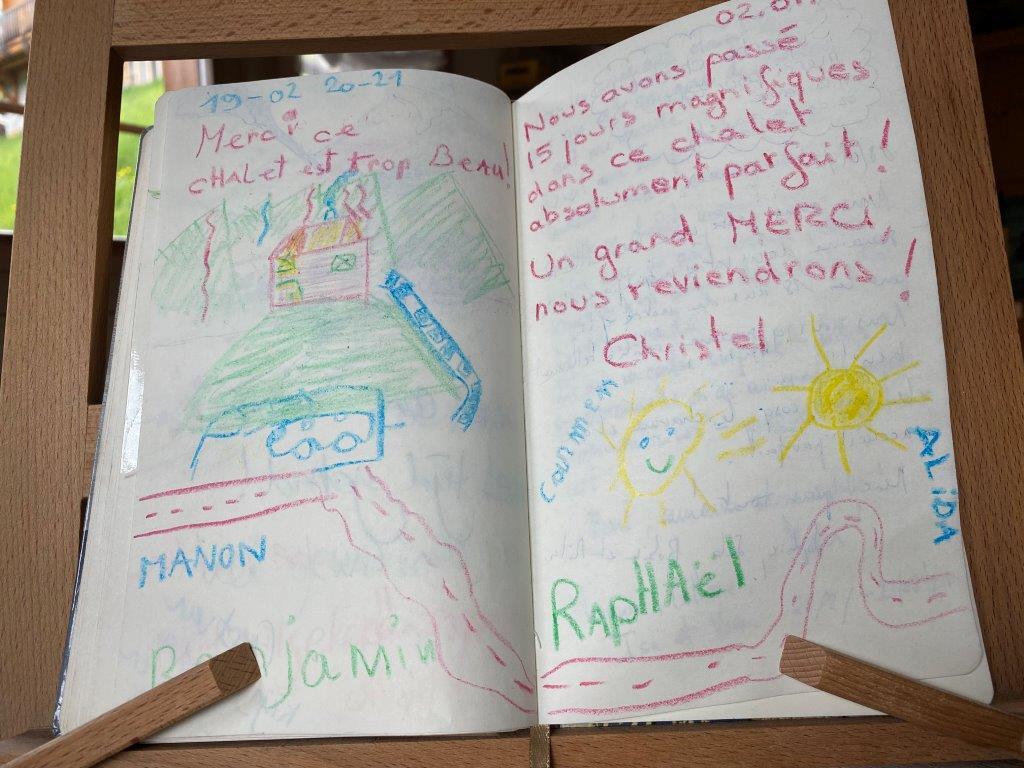 19-02 20-21
Merci ce
CHALet est trop BEAU!
MANON
Benjamin
02.01
Nous avons passé
15 jours magnifiques
dans ce chalet
absolument parfait !
Un grand MERCI,
nous reviendrons !
Christel
ALiDA
RApHAël